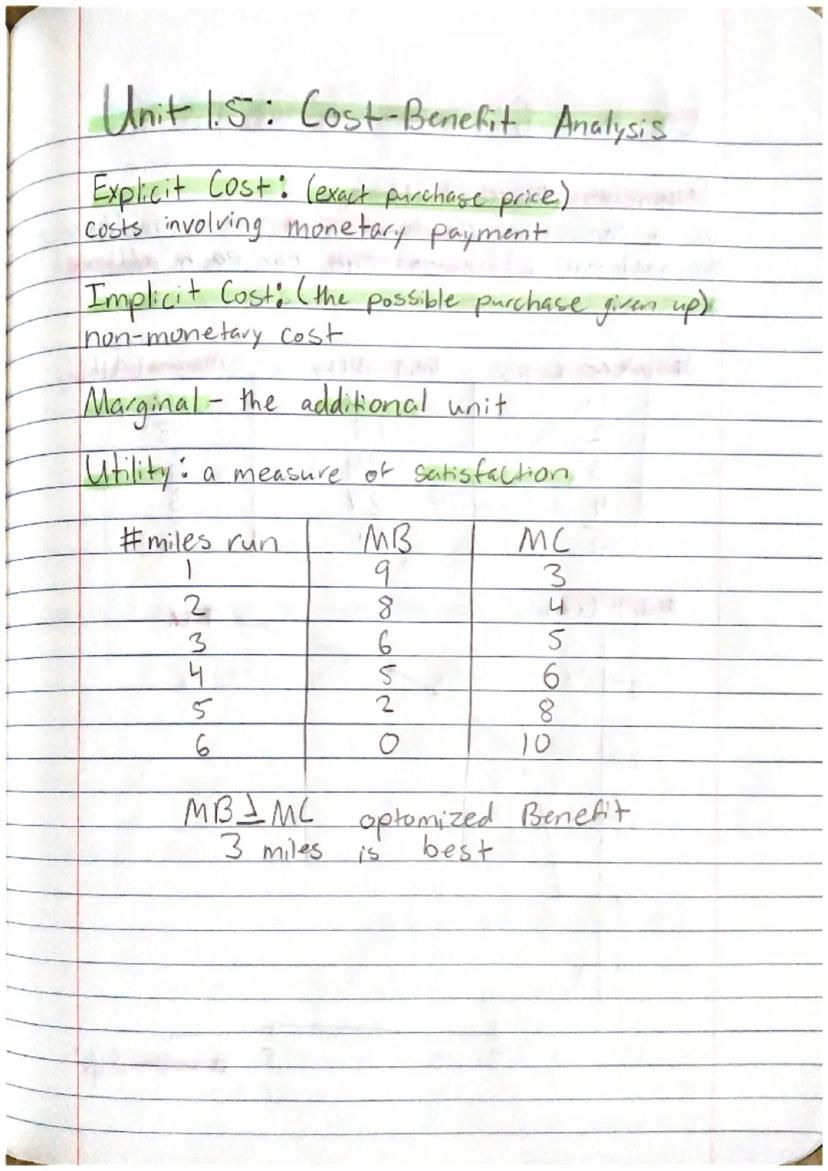 Unit 1.5: Cost-Benefit Analysis
Explicit Cost: (exact purchase price)
costs involving monetary payment
Implicit Cost: (the possible purchase given up)
non-monetary cost
Marginal - the additional unit
Utility: a measure of satisfaction
#miles run MB MC
1 9 3
2 8 4
3 6 5
4 5 6
5 2 8
6 0 10
MB ≥ MC optomized Benefit
3 miles is best